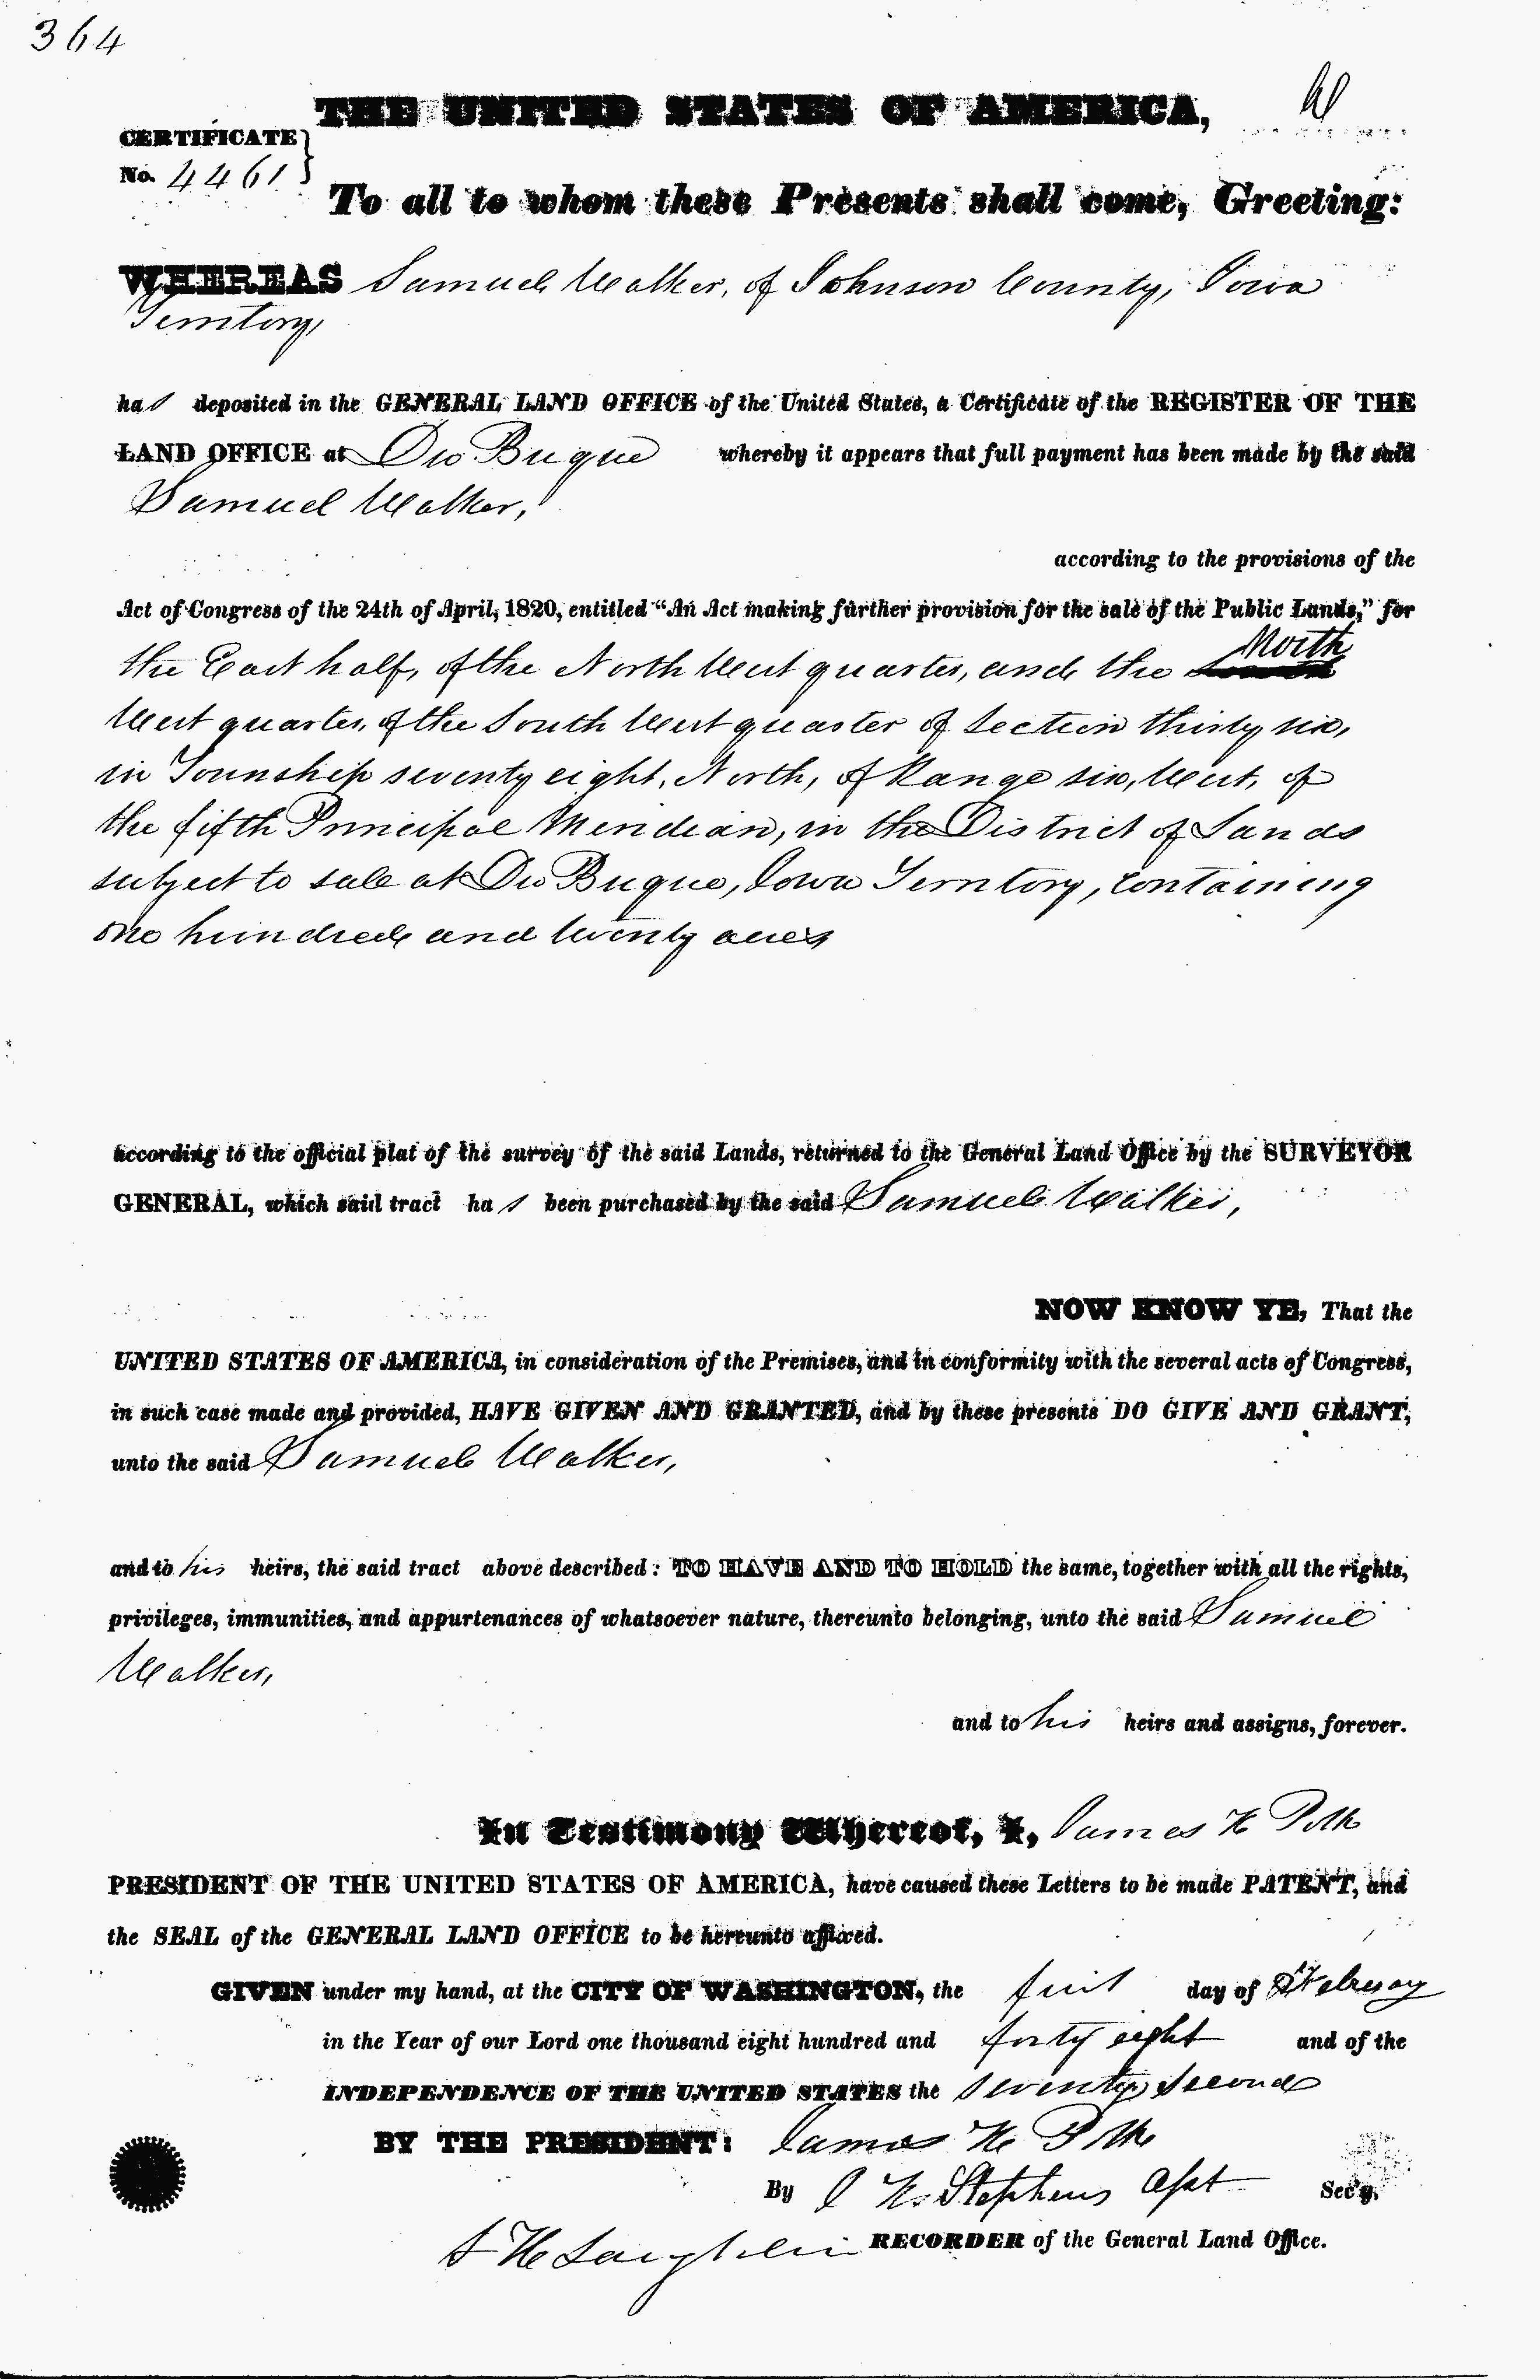 364
THE UNITED STATES OF AMERICA,
CERTIFICATE
No. 4461
To all to whom these Presents shall come, Greeting:
WHEREAS Samuel Walker, of Johnson County, Iowa
Territory,
has deposited in the GENERAL LAND OFFICE of the United States, a Certificate of the REGISTER OF THE
LAND OFFICE at Du Buque whereby it appears that full payment has been made by the said
Samuel Walker,
according to the provisions of the
Act of Congress of the 24th of April, 1820, entitled "An Act making further provision for the sale of the Public Lands," for
North
the East half, of the North West quarter, and the
West quarter, of the South West quarter of Section thirty six,
in Township seventy eight, North, of Range six, West, of
the fifth Principal Meridian, in the District of Lands
subject to sale at Du Buque, Iowa Territory, containing
one hundred and twenty acres
according to the official plat of the survey of the said Lands, returned to the General Land Office by the SURVEYOR
GENERAL, which said tract has been purchased by the said Samuel Walker,
NOW KNOW YE, That the
UNITED STATES OF AMERICA, in consideration of the Premises, and in conformity with the several acts of Congress,
in such case made and provided, HAVE GIVEN AND GRANTED, and by these presents DO GIVE AND GRANT,
unto the said Samuel Walker,
and to his heirs, the said tract above described: TO HAVE AND TO HOLD the same, together with all the rights,
privileges, immunities, and appurtenances of whatsoever nature, thereunto belonging, unto the said Samuel
Walker,
and to his heirs and assigns, forever.
In Testimony Whereof, I, James K Polk
PRESIDENT OF THE UNITED STATES OF AMERICA, have caused these Letters to be made PATENT, and
the SEAL of the GENERAL LAND OFFICE to be hereunto affixed.
GIVEN under my hand, at the CITY OF WASHINGTON, the first day of February
in the Year of our Lord one thousand eight hundred and forty eight and of the
INDEPENDENCE OF THE UNITED STATES the seventy second
BY THE PRESIDENT: James K Polk
By J K Stephens Asst Sec'y.
S H Laughlin RECORDER of the General Land Office.